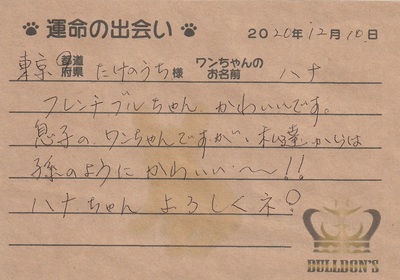 運命の出会い 2020年12月10日
東京 都道府県 たけのうち様 ワンちゃんのお名前 ハナ
フレンチブルちゃん かわいいです。
息子の、ワンちゃんですが、私達からは
孫のように かわいい〜〜!!
ハナちゃん よろしくネ!
BULLDON'S